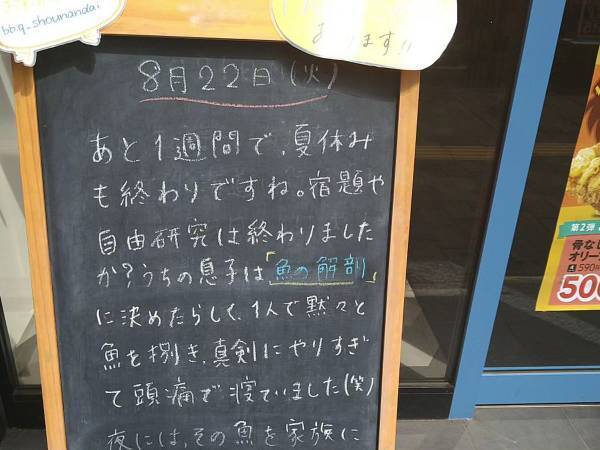 bb.q_shounandai
あります!!
8月22日(火)
あと1週間で、夏休み
も終わりですね。宿題や
自由研究は終わりました
か?うちの息子は「魚の解剖」
に決めたらしく、1人で黙々と
魚を捌き、真剣にやりすぎ
て頭痛で寝ていました(笑)
夜には、その魚を家族に
第2弾
骨な
オリー
590
500